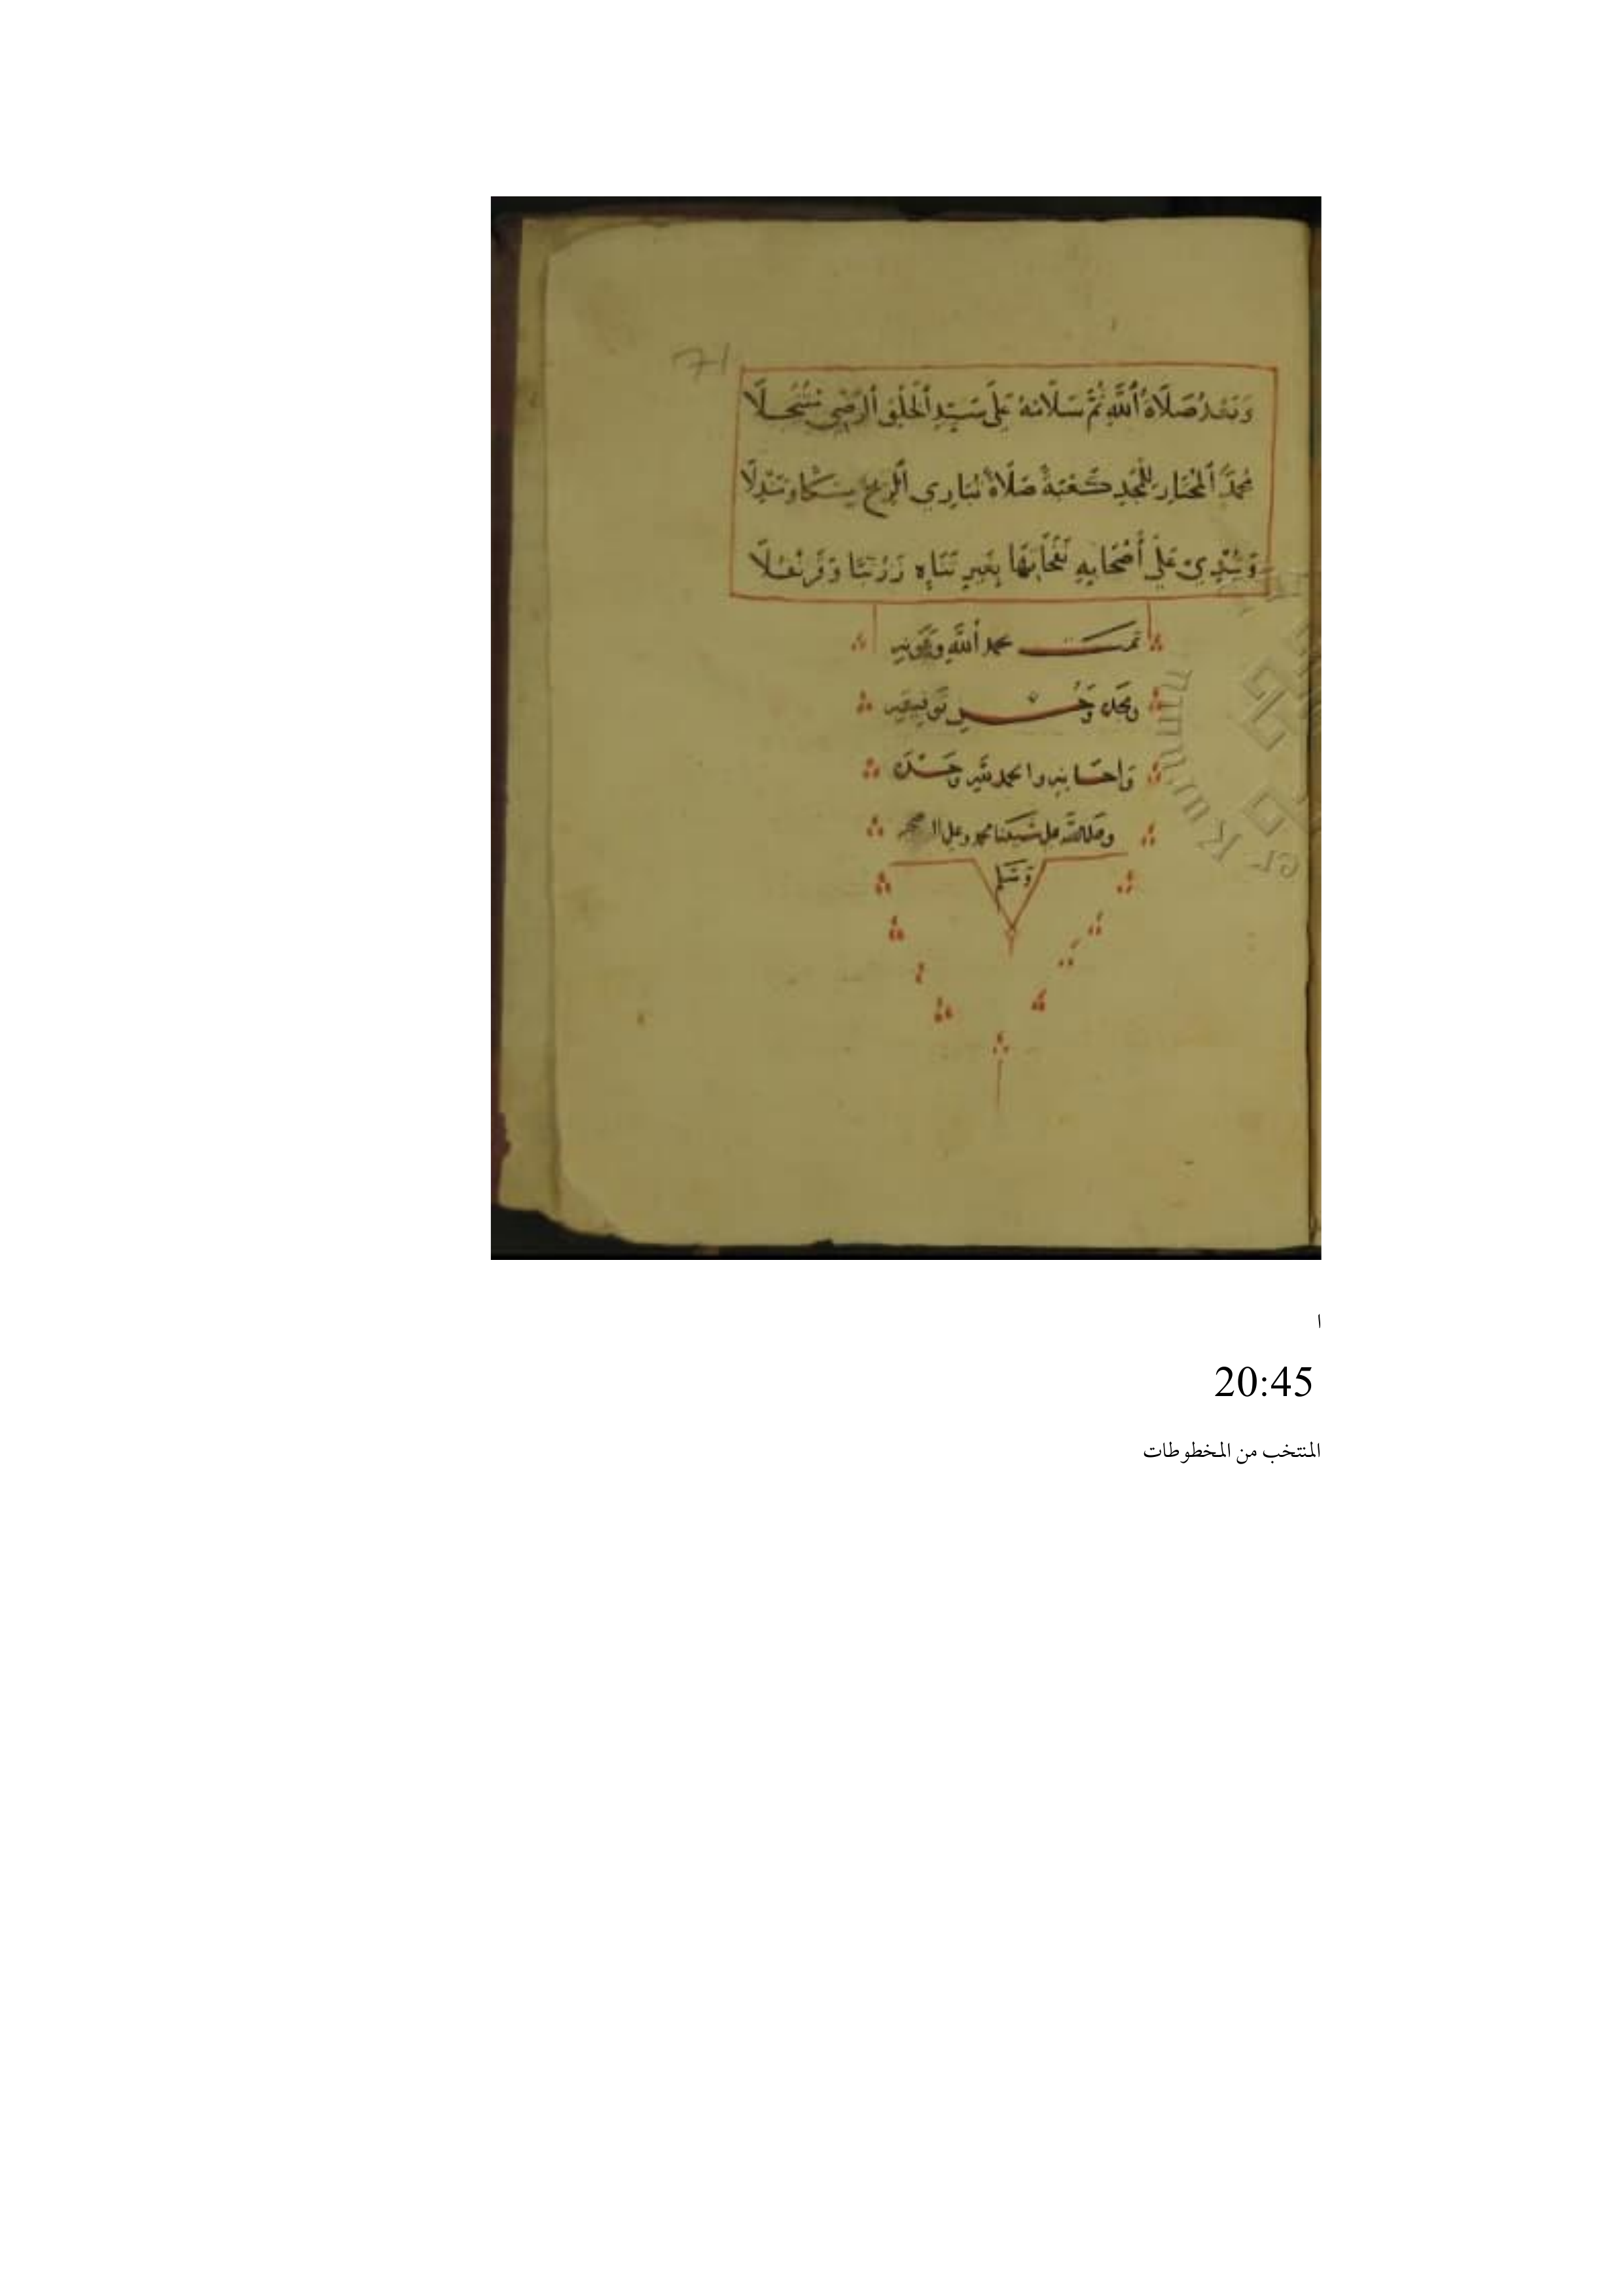 71
وَبَعْدُ صَلَاةُ ٱللَّهِ ثُمَّ سَلَامُهُ عَلَى سَيِّدِ ٱلْخَلْقِ ٱلرِّضَى مُتَنَخَّلَا
مُحَمَّدٍ ٱلْمُخْتَارِ لِلْمَجْدِ كَعْبَةً صَلَاةً تُبَارِي ٱلرِّيحَ مِسْكًا وَمَنْدَلَا
وَتُبْدِي عَلَى أَصْحَابِهِ نَفَحَاتِهَا بِغَيْرِ تَنَاهٍ زَرْنَبًا وَقَرَنْفُلَا
تمت بحمد ٱللَّهِ وعونه
وحسن توفيقه
والحمد لله وحده
وصلى الله على محمد وعلى ال
وَسَلم
ا
20:45
المنتخب من المخطوطات